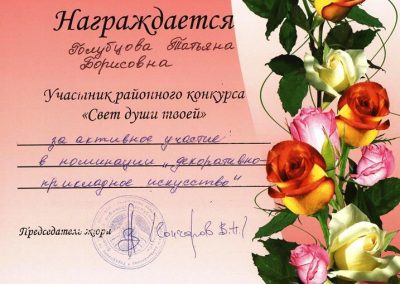 Награждается
Голубцова Татьяна
Борисовна
Участник районного конкурса
«Свет души твоей»
за активное участие
в номинации „декоративно-
прикладное искусство“
Председатель жюри Гончаров В.Н.